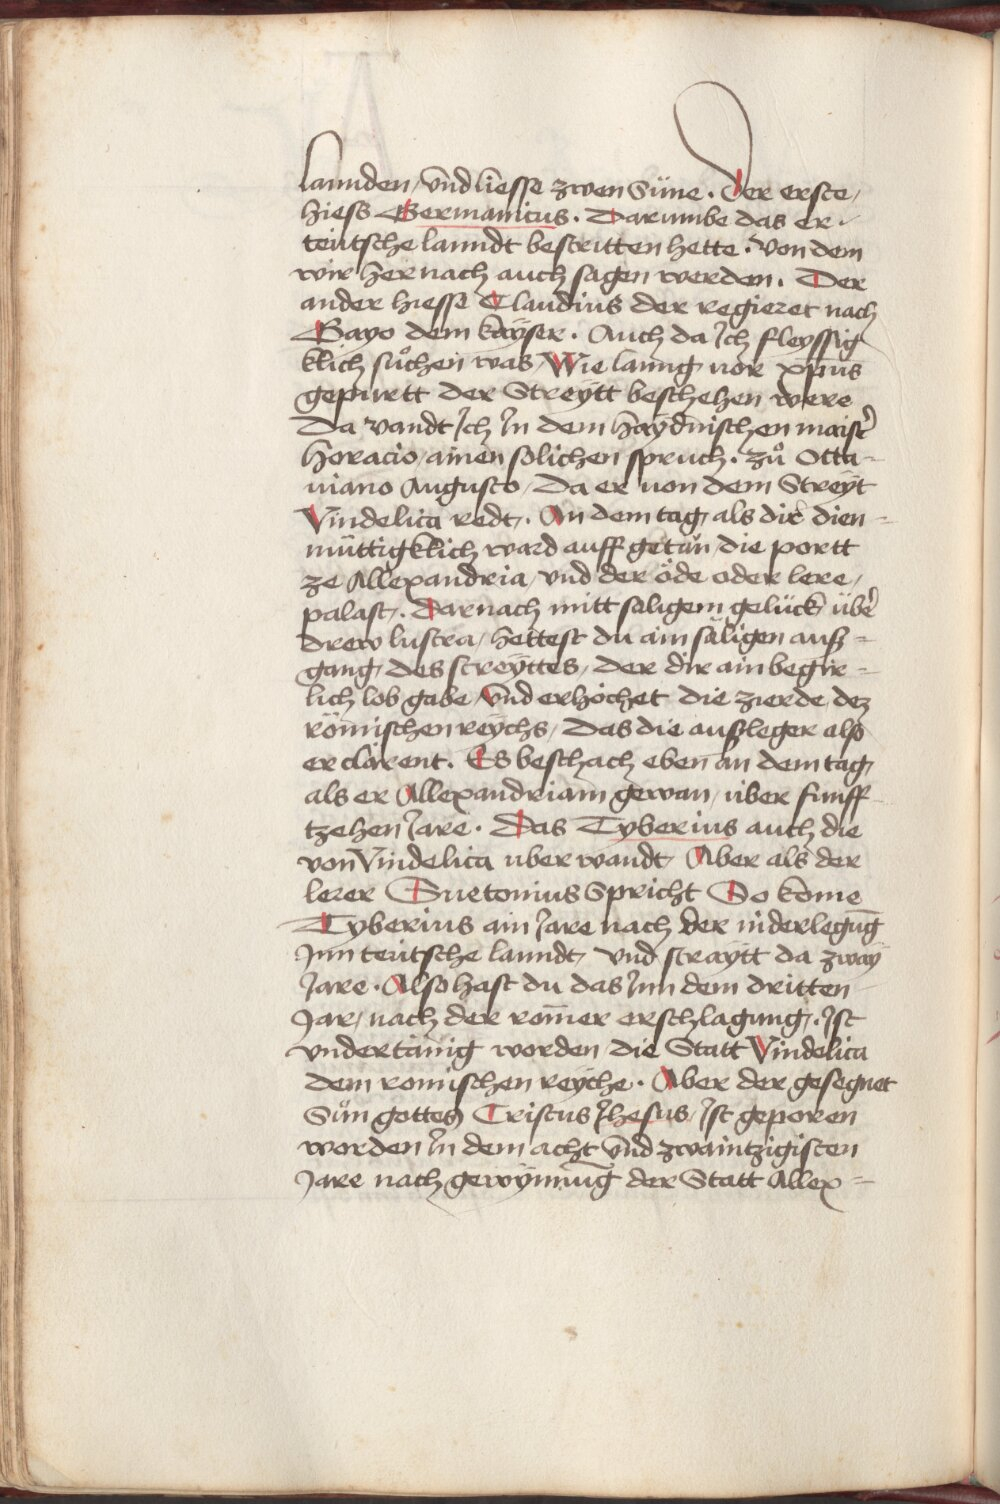 lannden, vnd liesse zwen Süne. Der erste,
hiess Germanicus. Darumbe das er.
teütsche lanndt bestritten hette. Von dem
wir hernach auch sagen werden. Der
ander hiesse Claudius der regieret nach
Gayo dem kayser. Auch da Ich fleyssig
klich sůchen was, Wie lanng vor xp̄us
gepurtt der Streytt beschehen were
Da vandt Ich In dem haydnischen maistˀ
Horacio, ainen solichen spruch. zů Otta=
uiano Augusto, Da er von dem Streyt
Vindelica redt. An dem tag, als dir dien=
müttigklich ward auff getän, die portt
ze Allexandria, vnd der öde oder lere,
palast. Darnach mitt saligem gelück übˀ
drew lustra, hettest du ain säligen auß=
gang, des streyttes, der dir ain begir=
lich lob gabe, vnd erhöchet die zierde dez
römischen reychs, das die außleger also
er clärent. Es beschach eben an dem tag,
als er Allexandriam gewan, über funff
tzehen Jare. Das Tyberius auch die
von Vindelica uber wandt, Aber als der
lerer Suetonius Spricht So kome
Tyberius ain Jare nach der niderlegug̅
Inn teütsche lanndt, vnd straytt da zway
Jare. Also hast du das Inn dem dritten
Jar, nach der rom̅er erschlagung,. Ist
vndertänig worden die Statt Vindelica
dem romischen reyche. Aber der gesegnet
Sůn gottes Cristus Jhesus, Ist geporen
worden In dem acht vnd zwaintzigisten
Jare nach gewynnug̅ der Statt Allex=